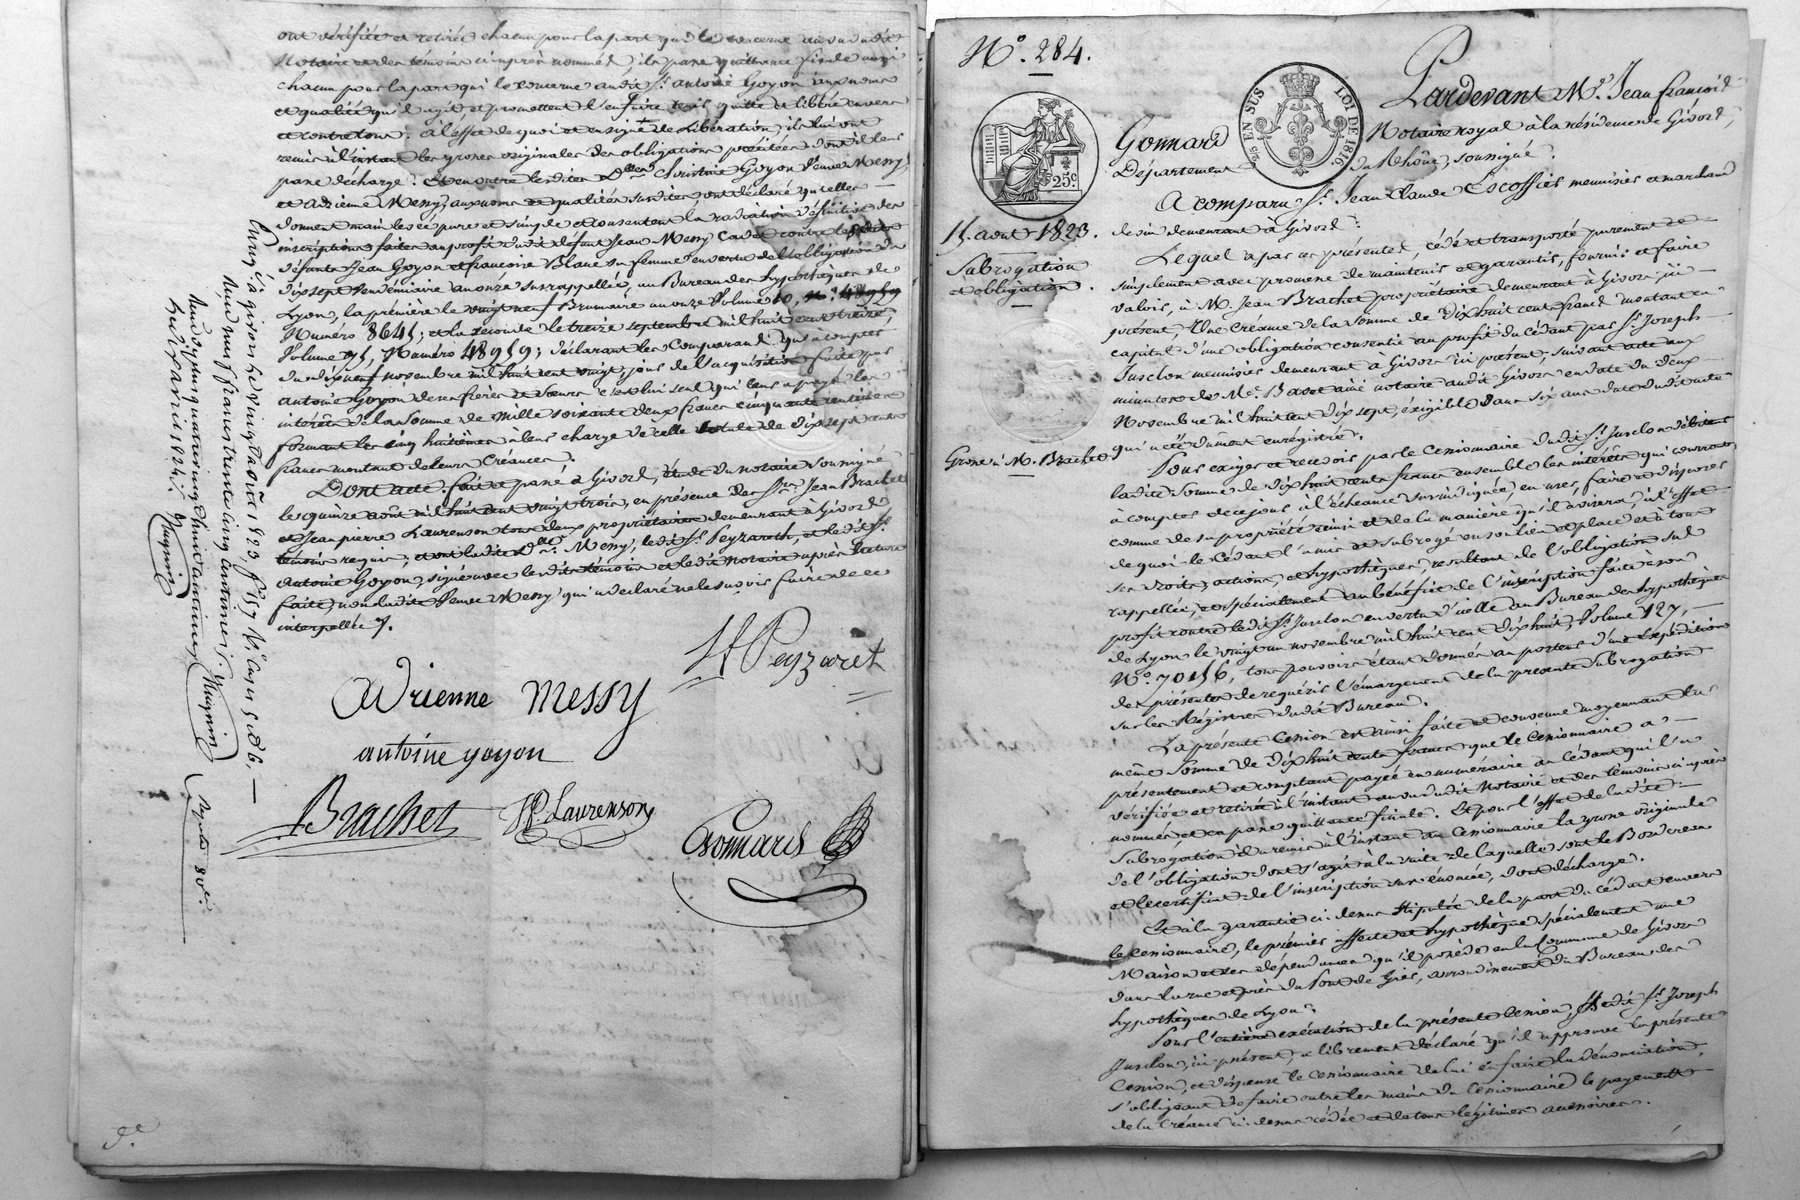 ont vérifiée et retirée chacun pour la part qui le concerne au vu dudit
Notaire et des témoins ci après nommés; ils passe quittance finale aussi
chacun pour la part qui le concerne audit Sr. antoine Goyon aux noms
et qualité qu'il agit, et promettent l'en faire tenir quitte et libéré envers
et contre tous. a l'effet de quoi et en signe de Libération, ils lui ont
remis à l'instant les grosses originales des obligations précitées dont il leur
passe décharge. Et en outre lesdites Dlles. Christine Goyon Veuve Messy,
et Adrienne Messy, aux noms et qualités susdites ont déclaré qu'elles
donnent main levée pure et simple et consentent la radiation définitive des
inscriptions faites au profit dudit défunt Jean Messy Cadet contre lesdits
défunts Jean Goyon et françoise Blanc sa femme en vertu de l'obligation du
dix sept Vendémiaire an onze susrappellée, au Bureau des hypothèques de
Lyon, la première le vingt neuf Brumaire an onze Volume 10, n.º 48959
Numéro 8645; et la seconde le treize septembre mil huit cent treize,
Volume 95, Numéro 48959; déclarant les Comparans qu'à compter
du dix neuf novembre mil huit cent vingt, jour de l'acquisition faite par
antoine Goyon de ses frères et sœurs c'est lui seul qui leur a payé les
intérêts de la somme de mille soixante deux francs cinquante centimes
formant les cinq huitièmes à leur charge de celle totale de dix sept cents
francs montant de leurs Créances.
Dont acte. fait et passé à Givors, étude du notaire soussigné
le quinze août mil huit cent vingt trois, en présence des Srs. Jean Brachet
et Jean pierre Laurenson tous deux propriétaires demeurant à Givors
témoins requis, et ont ladite Dlle. Messy, ledit Sr. Peyzaret, et ledit Sr.
Antoine Goyon, signé avec lesdits témoins et ledit Notaire après lecture
faite, non ladite Veuve Messy qui a déclaré ne le savoir faire de ce
interpellée.
Peyzaret
Adrienne Messy
antoine goyon
Brachet
JP. Laurenson
Gonnard
Enr. à givors le vingt août 1823, fº 57
Reçu neuf francs trente cinq centimes.
Mugnier
Nº. 284.
25 EN SUS
LOI DE 1816.
25c
Pardevant Mre. Jean françois
Gonnard Notaire royal à la résidence de Givors,
Département du Rhône, soussigné.
A comparu Sr. Jean Claude Escoffier menuisier et marchand
de vin demeurant à Givors.
15. aout 1823.
Subrogation
et obligation.
Grosse à M. Brachet
Lequel a par ces présentes, cédé et transporté purement et
simplement avec promesse de maintenir et garantir, fournir et faire
valoir, à M. Jean Brachet propriétaire demeurant à Givors ici
présent, Une Créance de la somme de dix huit cents francs montant en
capital d'une obligation consentie au profit du cédant par Sr. Joseph
Jusclon menuisier demeurant à Givors ici présent, suivant acte aux
minutes de Me. Badet ainé notaire audit Givors en date du deux
Novembre mil huit cent dix sept, exigible dans six ans du dudit acte
qui a été dument enrégistré.
Pour exiger et recevoir par le Cessionnaire dudit Sr. Jusclon débiteur
ladite somme de dix huit cents francs ensemble les intérêts qui courront
à compter de ce jour à l'échéance sus indiquée, en user, faire et disposer
comme de sa propriété ainsi et de la manière qu'il avisera; à l'effet
de quoi le Cédant l'a mis et subrogé en son lieu et place et à tous
ses droits, actions, et hypothèques, résultant de l'obligation sus
rappellée, et spécialement au bénéfice de l'inscription faite à son
profit contre ledit Sr. Jusclon en vertu d'icelle au Bureau des hypothèques
de Lyon le vingt un novembre mil huit cent dix huit, Volume 127,
Nº. 70156, tous pouvoirs étant donnés au porteur d'une expédition
des présentes de requérir l'émargement de la présente subrogation
sur les Régistres dudit Bureau.
La présente Cession est ainsi faite et convenue moyennant la
même somme de dix huit cents francs que le Cessionnaire a
présentement et comptant payée en numéraire au Cédant qui l'a
vérifiée et retirée à l'instant au vu dudit Notaire et des témoins ci après
nommés, et en passe quittance finale. Et pour l'effet de ladite
subrogation il a remis à l'instant au Cessionnaire la grosse originale
de l'obligation dont s'agit à la suite de laquelle sont le Bordereau
et le certificat de l'inscription sus énoncée, dont décharge.
Et à la garantie ci-dessus stipulée de la part du cédant envers
le Cessionnaire, le premier affecte et hypothèque spécialement une
Maison et ses dépendances qu'il possède en la Commune de Givors
dans la rue et près du Pont de Gier, arrondissement du Bureau des
hypothèques de Lyon.
Pour l'entière exécution de la présente Cession, ledit Sr. Joseph
Jusclon, ici présent a librement déclaré qu'il approuve la présente
Cession, et dispense le Cessionnaire de lui en faire la dénonciation,
s'obligeant de faire entre les mains du Cessionnaire le payement
de la Créance ci-dessus cédée et de tous légitimes accessoires.